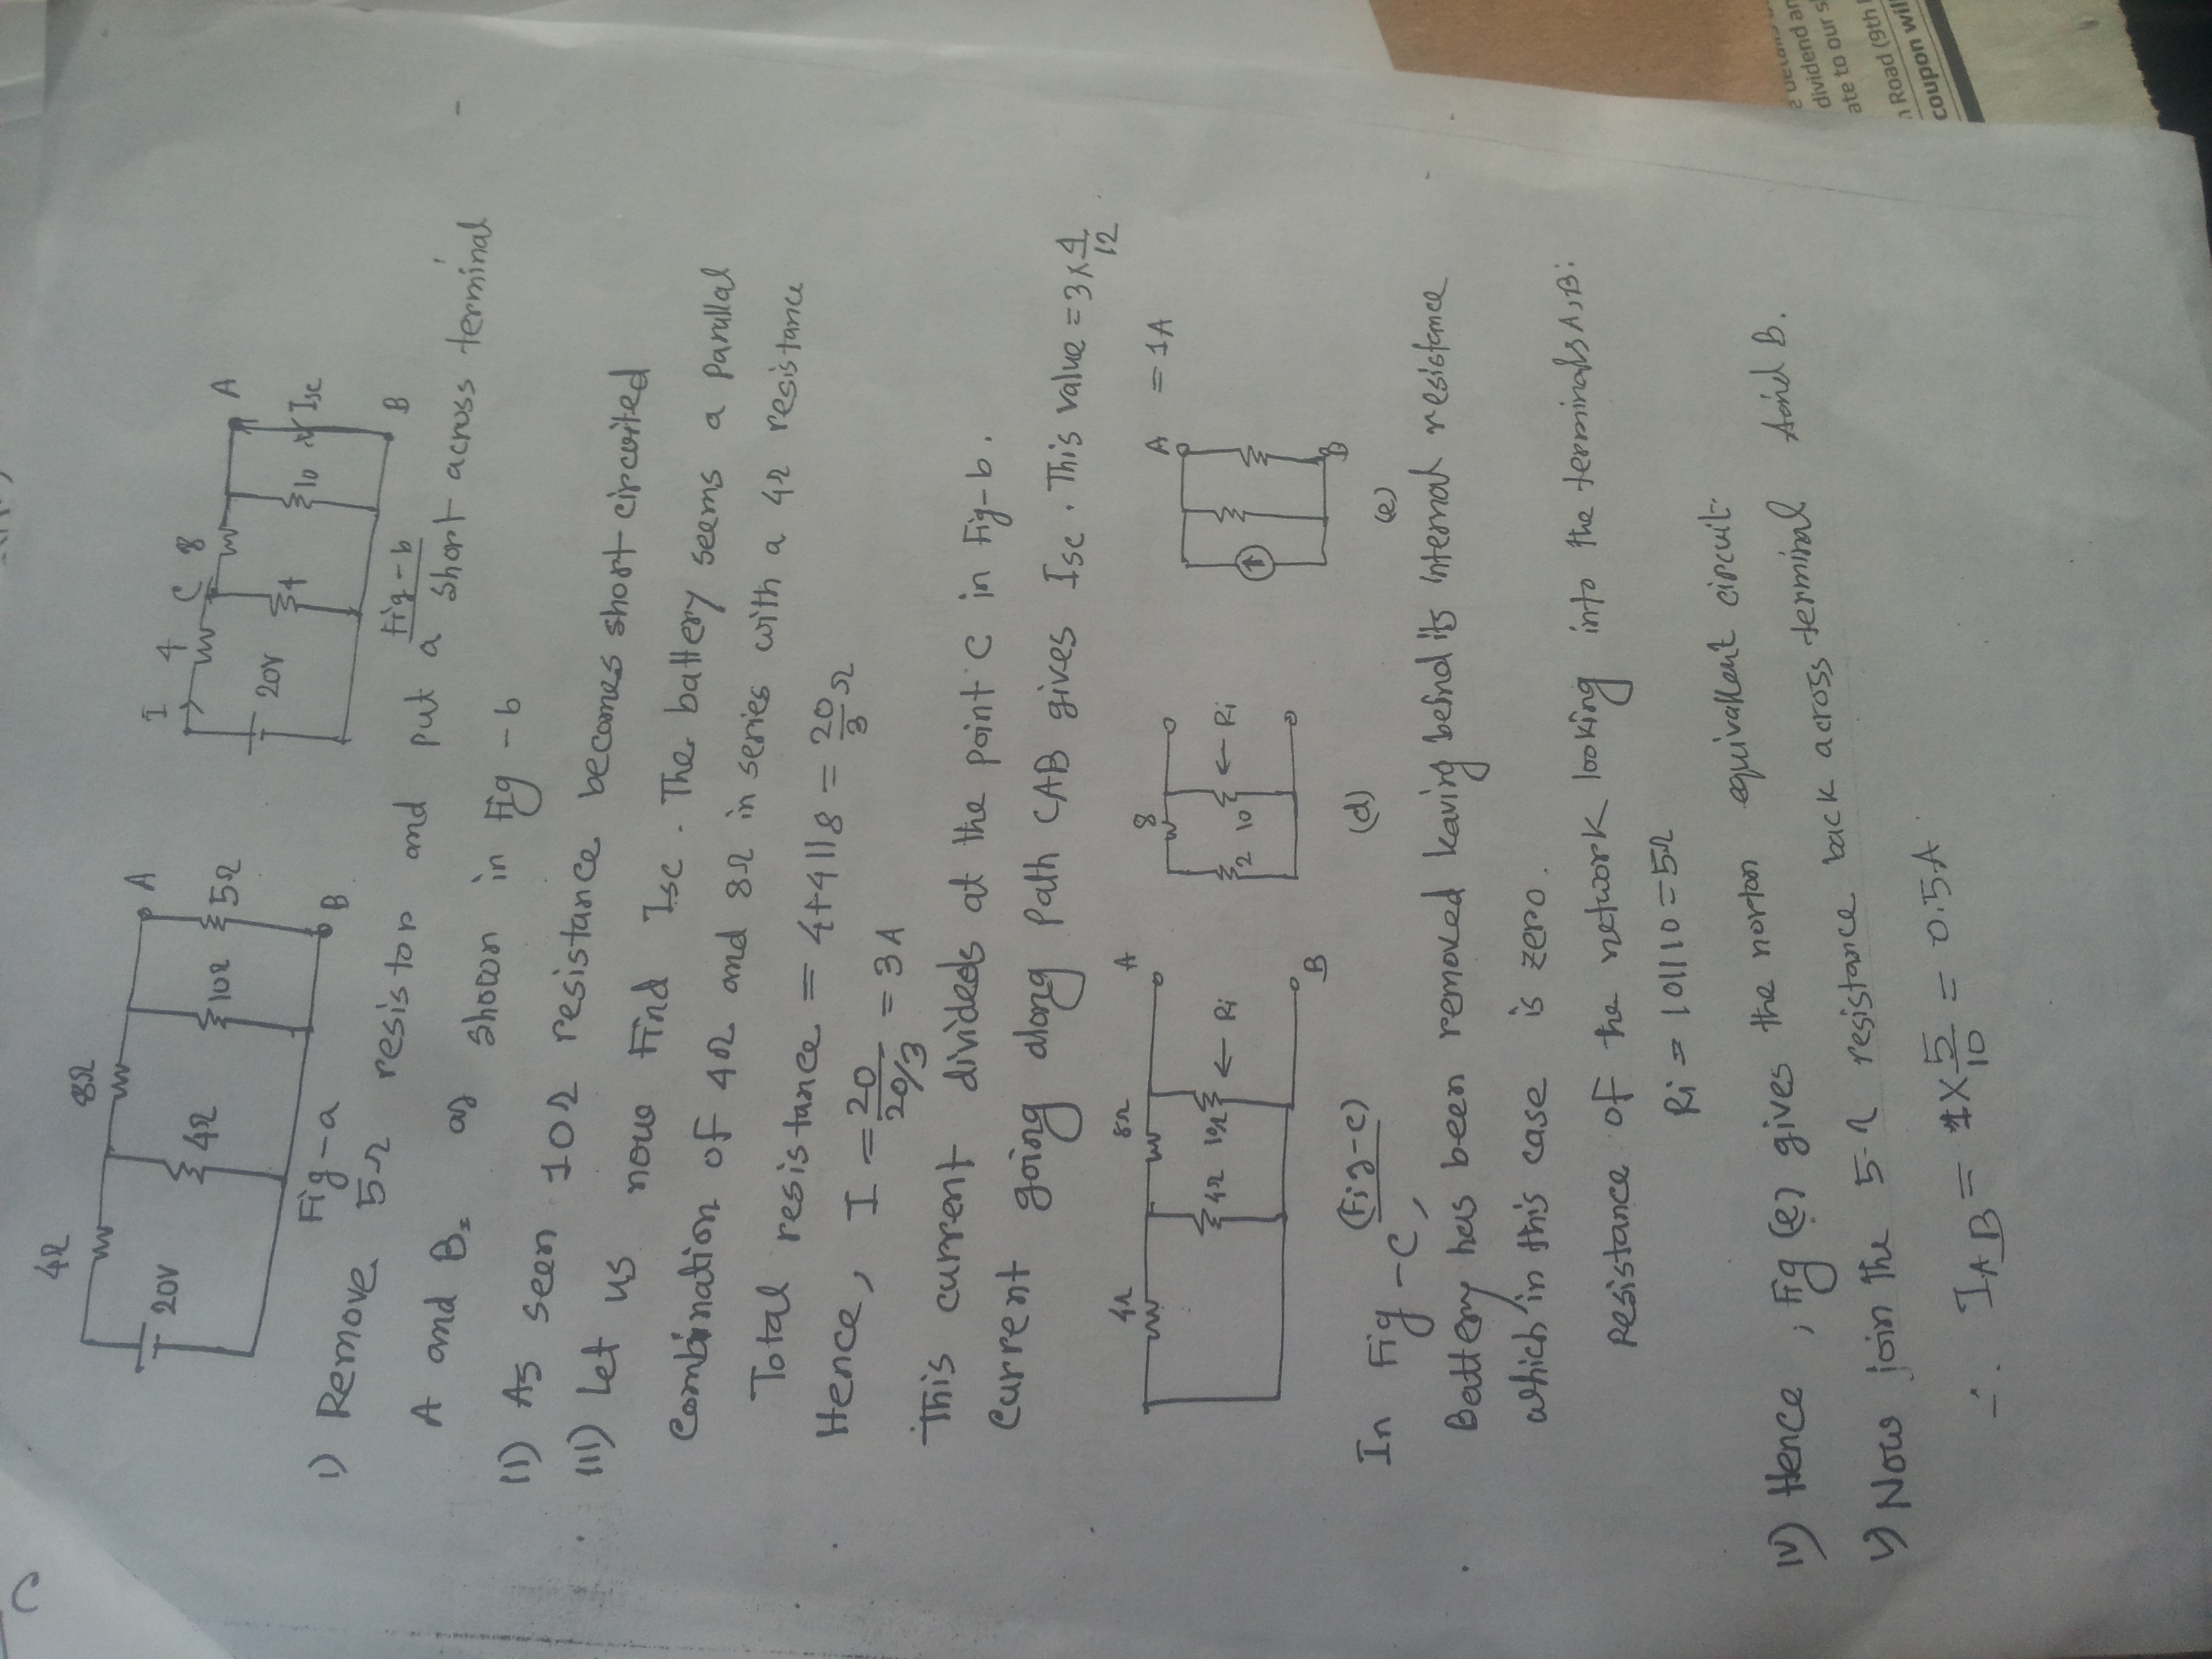 4Ω 8Ω
A
20V 4Ω 10Ω 5Ω
B
Fig-a
I 4 C 8
A
20V 4 10 Isc
B
Fig-b
i) Remove 5Ω resistor and put a short across terminal
A and B. as shown in Fig-b
(II) As seen 10Ω resistance becomes short circuited
III) Let us now Find Isc. The battery seems a parallal
Combination of 4Ω and 8Ω in series with a 4Ω resistance
Total resistance = 4+4||8 = 20/3 Ω
Hence, I = 20/20/3 = 3A
This current divideds at the point C in Fig-b.
Current going along Path CAB gives Isc. This value = 3×4/12
= 1A
4Ω 8Ω A
4Ω 10Ω ← Ri
B
(Fig-c)
8
2 10 ← Ri
(d)
A
B
(e)
In Fig-c,
Battery has been removed leaving beind its internal resistance
which in this case is zero.
Resistance of the network looking into the terminals A,B:
Ri = 10||10 = 5Ω
IV) Hence, Fig (e) gives the norton equivallent circuit.
V) Now join the 5-Ω resistance back across terminal A and B.
∴ IAB = 1×5/10 = 0.5A
dividend
ate to our
Road (9th
coupon